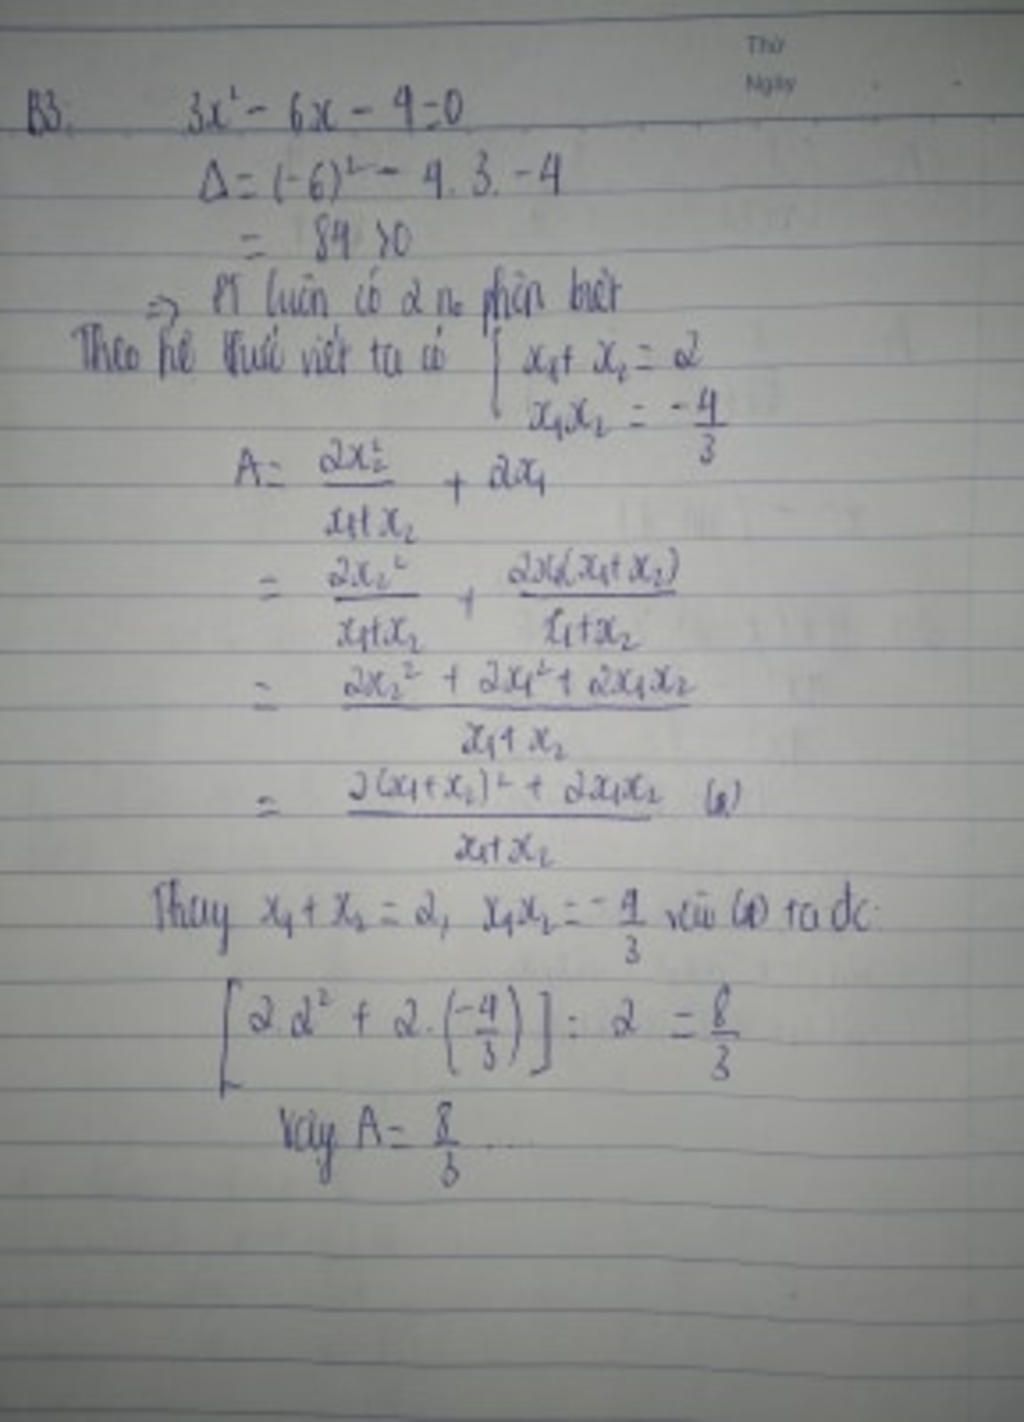 Thứ
Ngày
B3. 3x² - 6x - 4 = 0
Δ = (-6)² - 4. 3. -4
= 84 > 0
=> PT luôn có 2 n₀ phân biệt
Theo hệ thức viét ta có { x₁ + x₂ = 2
x₁x₂ = -4/3
A = 2x₂²/(x₁+x₂) + 2x₁
= 2x₂²/(x₁+x₂) + 2x₁(x₁+x₂)/(x₁+x₂)
= (2x₂² + 2x₁² + 2x₁x₂)/(x₁+x₂)
= (2(x₁+x₂)² + 2x₁x₂)/(x₁+x₂)
Thay x₁ + x₂ = 2, x₁x₂ = -4/3 vào ta đc:
[2.2² + 2.(-4/3)] : 2 = 8/3
Vậy A = 8/3 ....